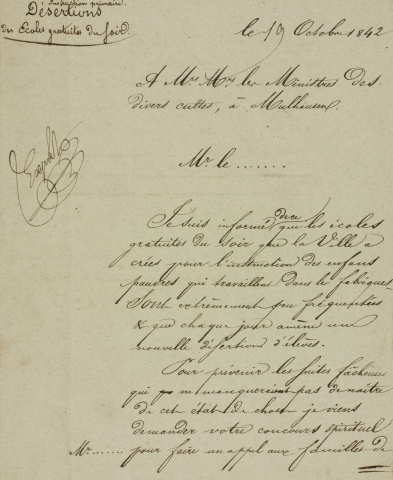 Instruction primaire.
Désertions
des Ecoles gratuites du soir.
le 19 Octobre 1842
A Mrs. Mrs les Ministres des
divers cultes, à Mulhausen.
Mr. le .......
Je suis informé que les écoles
gratuites du soir que la Ville a
crées pour l'instruction des enfans
pauvres qui travaillent dans les fabriques
sont extrêmement peu fréquentées
& que chaque jour amène une
nouvelle désertion d'élèves.
Pour prévenir les suites fâcheuses
qui ne manqueraient pas de naître
de cet état de chose je viens
demander votre concours spirituel
Mr. ...... pour faire un appel aux familles de